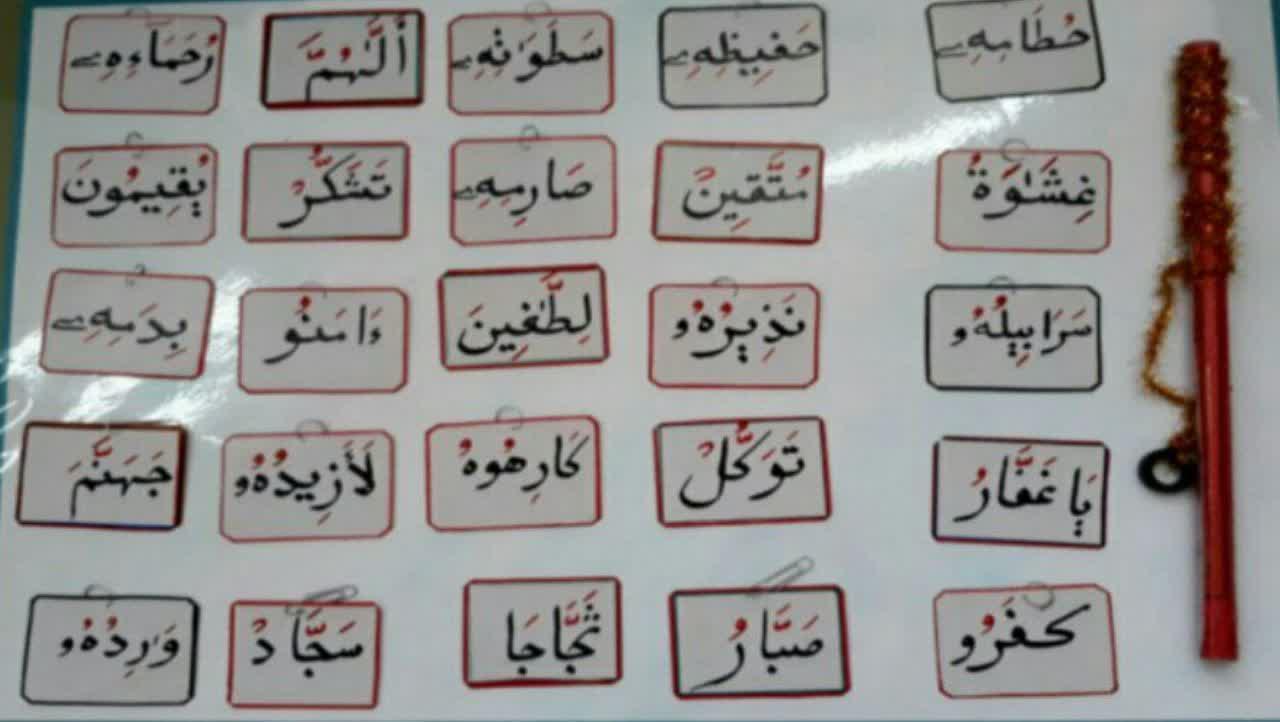 خُطَامِهِے حَفِيظِهِے سَطَوَٰتِهِے أَللَّهُمَّ رُحَمَآءِهِے
غِشَٰوَةُ مُتَّقِينَ صَارِمِهِے تَشَكَّرُ يُقِيمُونَ
سَرَابِيلُهُو نَذِيرُهُو لِطَّٰفِينَ ءَامَنُو بِدَمِهِے
يَاغَفَّارُ تَوَكَّلُ كَارِهُوهُ لَأَزِيدُهُو جَهَنَّمَ
كَفَرُو صَبَّارُ ثَجَّاجَا سَجَّادُ وَٰرِدُهُو